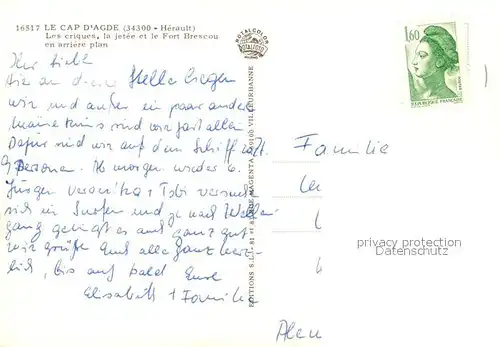 16517 LE CAP D'AGDE (34300 - Hérault)
Les criques, la jetée et le Fort Brescou
en arrière plan
Ihr Lieben
Hier an dieser Stelle liegen
wir und außer ein paar andere
sind wir fast allein
Dafür sind wir auf dem Schiff
9 Personen. Ab morgen wieder 6.
Jürgen Veronika + Tobi versuchen
sich im Surfen und je nach Wellen
gang gelingt es auch ganz gut
wir grüße Euch alle ganz herz
lich, bis auf bald Eure
Elisabeth + Familie
EDITIONS S.L. VILLEURBANNE
1,60
REPUBLIQUE FRANÇAISE
Familie
privacy protection
Datenschutz